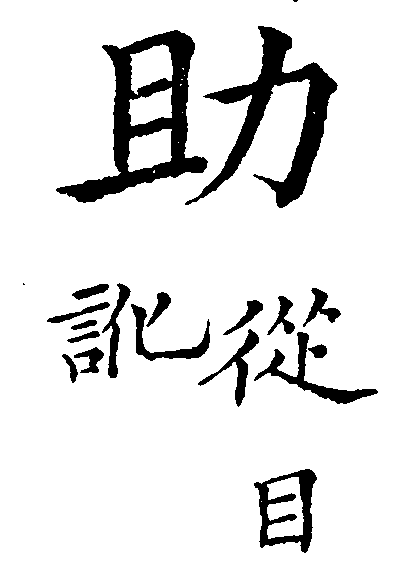 助
從目
訛